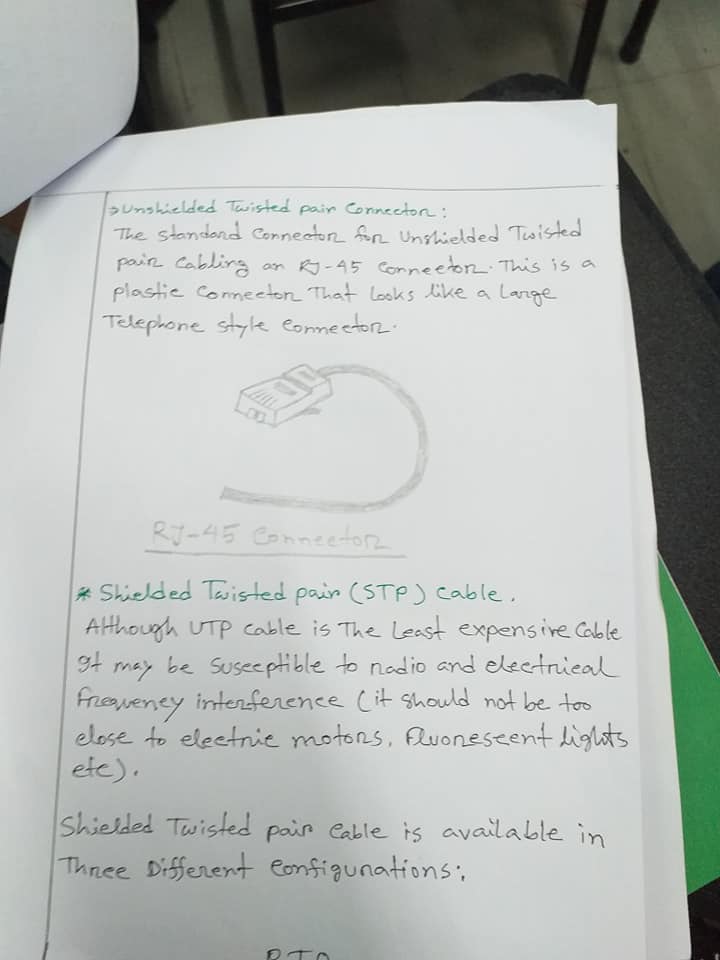 → Unshielded Twisted pair Connector:
The standard Connector for Unshielded Twisted
pair Cabling an RJ-45 Connector. This is a
plastic Connector That Looks like a Large
Telephone style Connector.
RJ-45 Connector
* Shielded Twisted pair (STP) Cable.
Although UTP cable is The Least expensive Cable
It may be Susceptible to radio and electrical
frequency interference (it should not be too
close to electric motors, fluorescent lights
etc).
Shielded Twisted pair Cable is available in
Three Different Configurations:
PTO